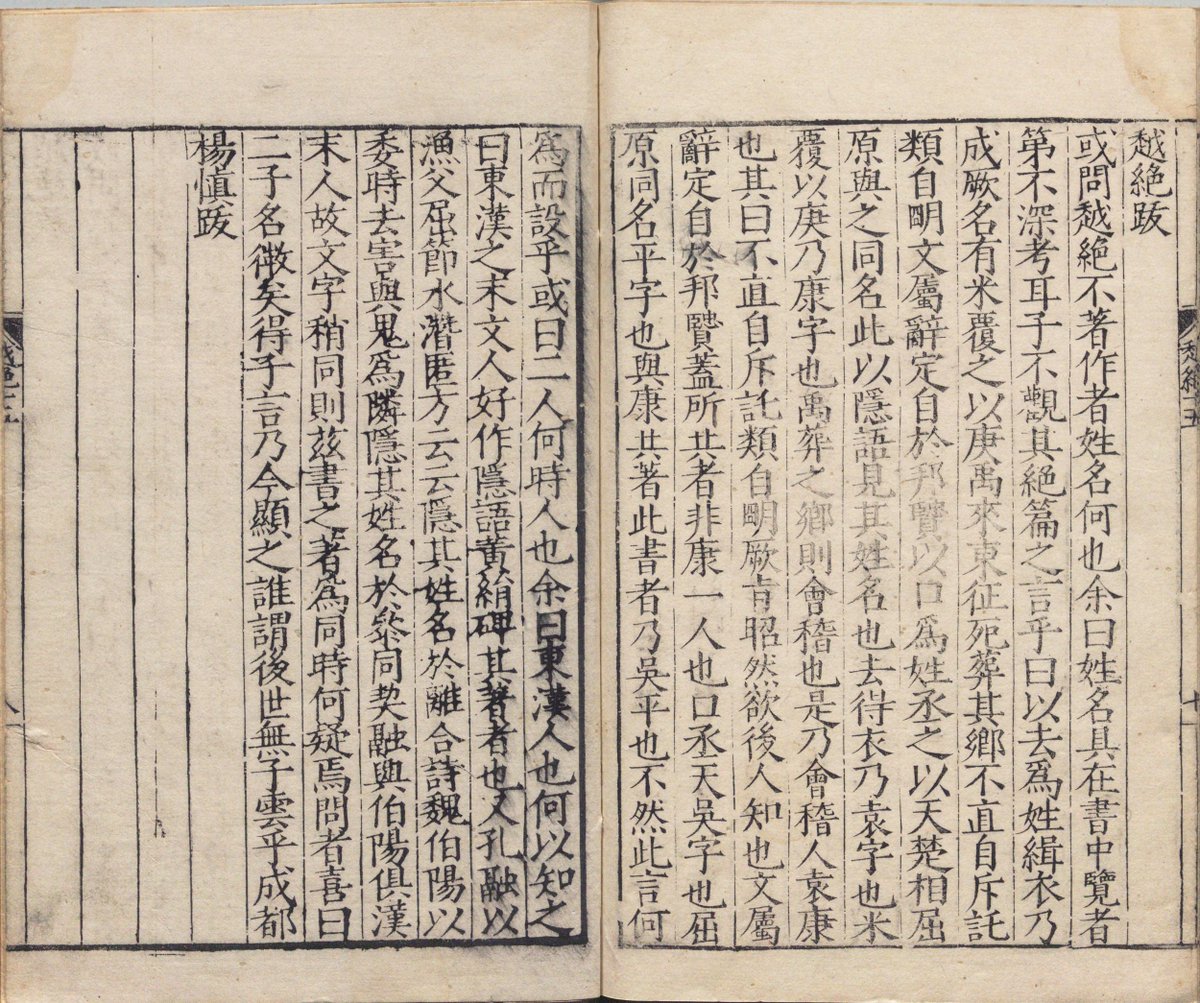 越絕跋
或問越絕不著作者姓名何也余曰姓名具在書中覽者
第不深考耳子不觀其絕篇之言乎曰以去為姓緝衣乃
成厥名有米覆之以庚禹來東征死葬其鄉不直自斥託
類自明文屬辭定自於邦賢以口為姓丞之以天楚相屈
原與之同名此以隱語見其姓名也去得衣乃袁字也米
覆以庚乃康字也禹葬之鄉則會稽也是乃會稽人袁康
也其曰不直自斥託類自明厥旨昭然欲後人知也文屬
辭定自於邦賢蓋所共者非康一人也口丞天吳字也屈
原同名平字也與康共著此書者乃吳平也不然此言何
為而設乎或曰二人何時人也余曰東漢人也何以知之
曰東漢之末文人好作隱語黃絹碑其著者也又孔融以
漁父屈節水潛匿方云云隱其姓名於離合詩魏伯陽以
委時去害與鬼為隣隱其姓名於參同契融與伯陽俱漢
末人故文字稍同則茲書之著為同時何疑焉問者喜曰
二子名微矣得子言乃今顯之誰謂後世無子雲乎成都
楊慎跋